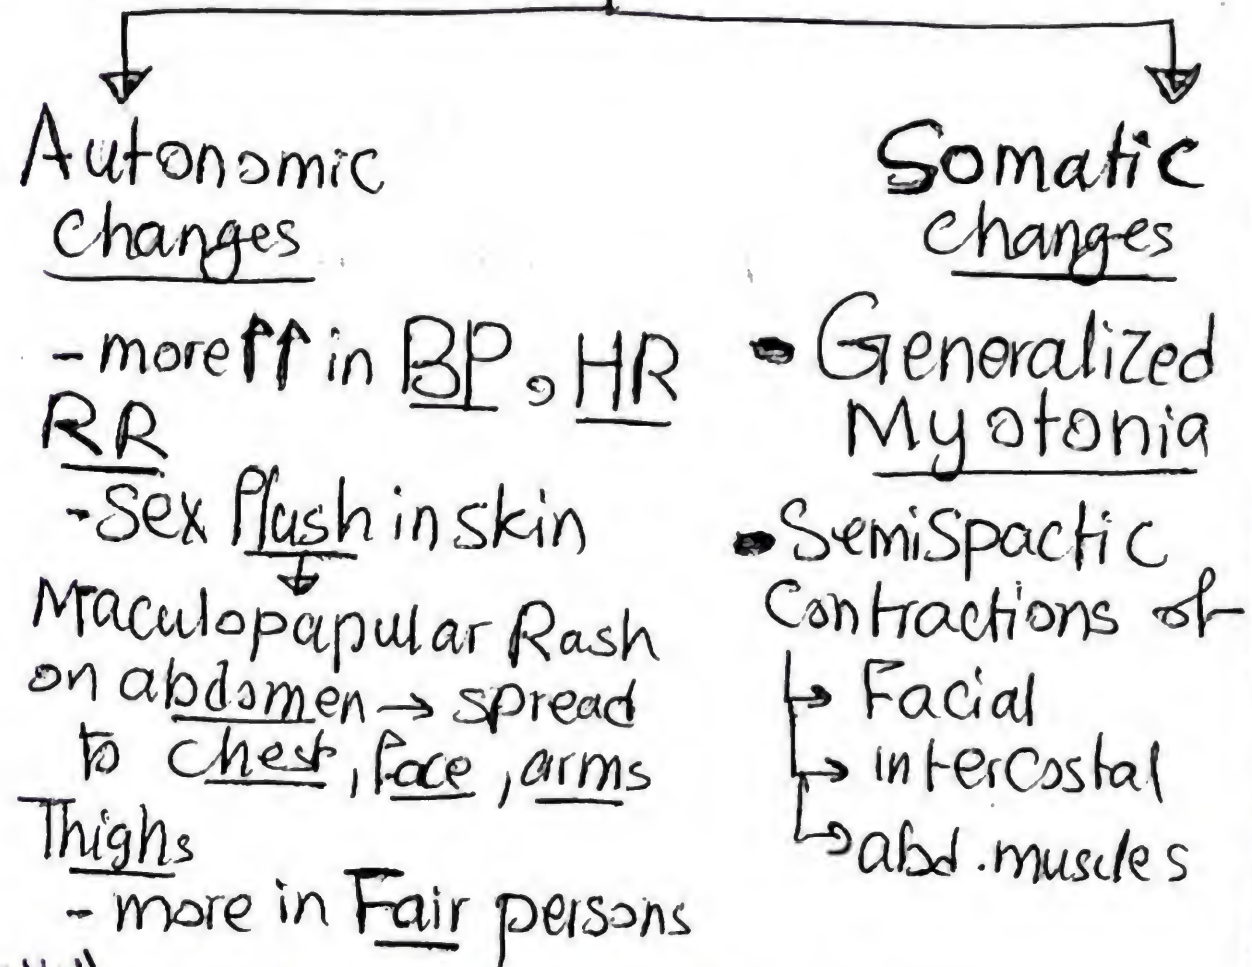 Autonomic
changes
- more ↑↑ in BP, HR
RR
- Sex flush in skin
↓
Maculopapular Rash
on abdomen → spread
to chest, face, arms
Thighs
- more in Fair persons
Somatic
changes
• Generalized
Myotonia
• Semispactic
Contractions of
→ Facial
→ intercostal
→ abd. muscles